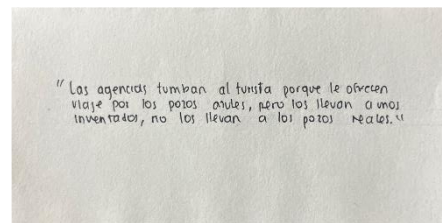 "Las agencias tumban al turista porque le ofrecen
viaje por los pozos azules, pero los llevan a unos
inventados, no los llevan a los pozos reales."